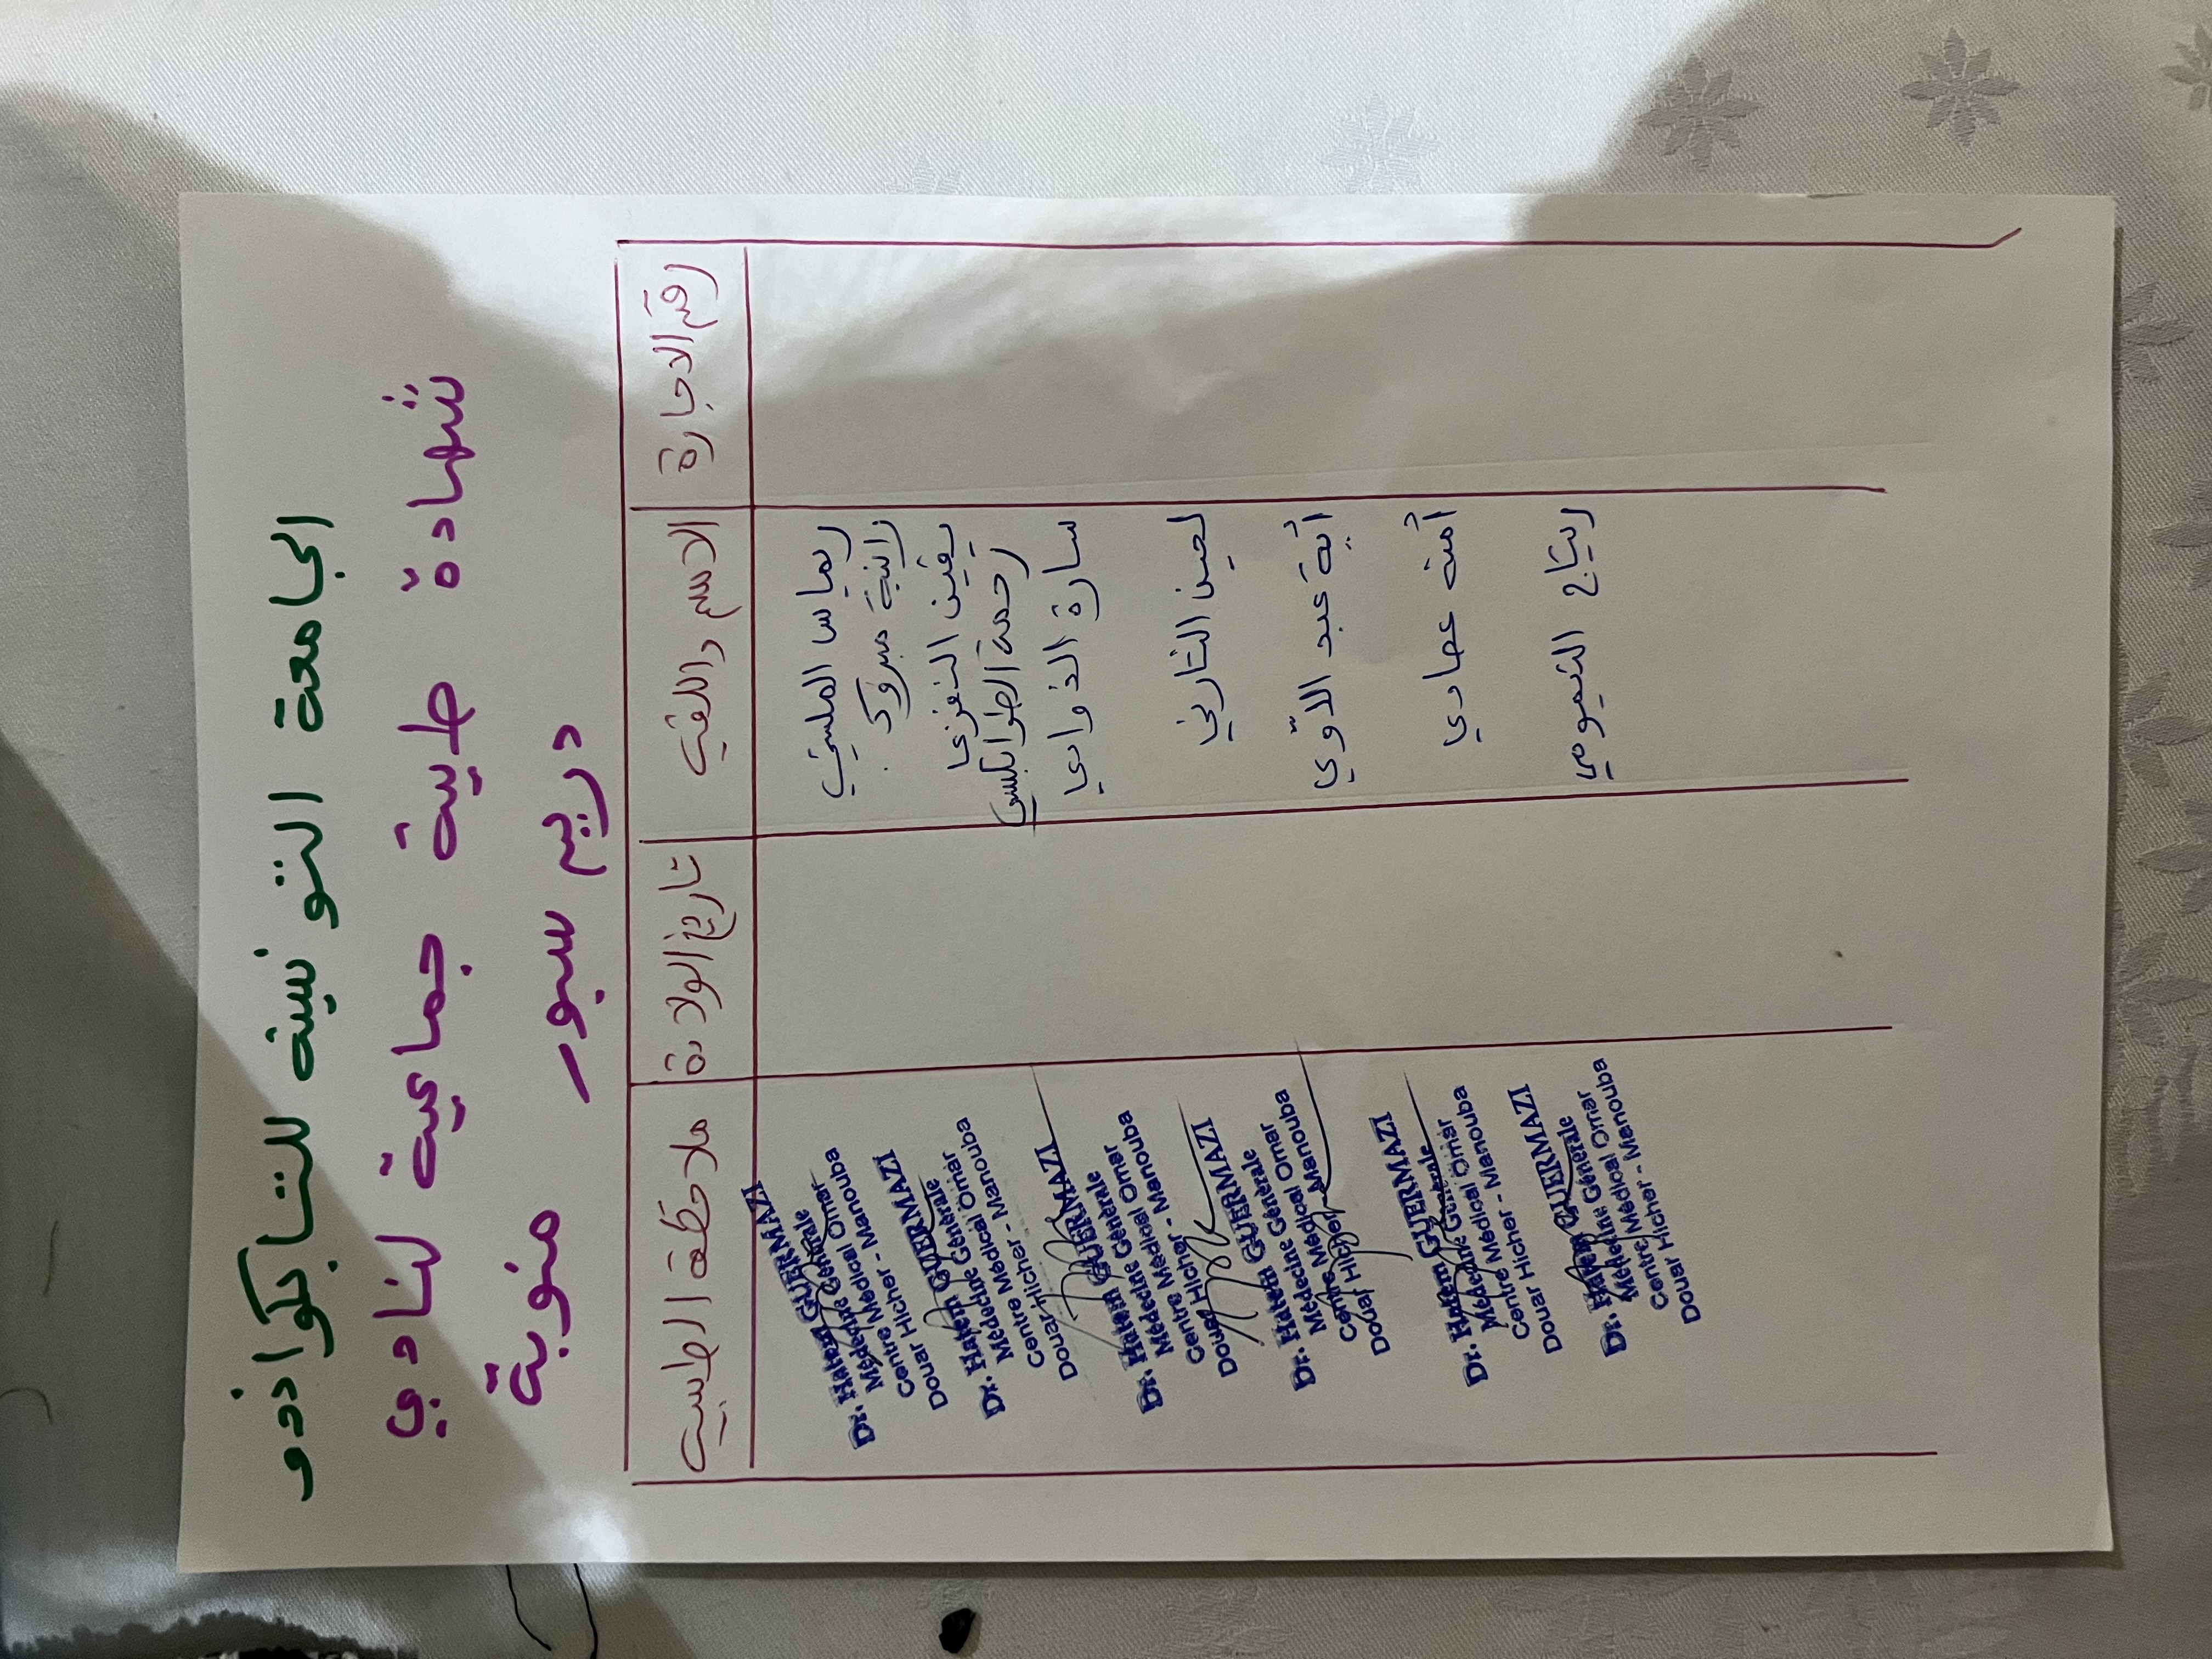 الجامعة التونسية للتايكواندو
شهادة طبية جماعية لنادي
دريم سبور منوبة
رقم الاجازة
الاسم واللقب
تاريخ الولادة
ملاحظة الطبيب
ريماس الملسي
رانية مبروك
يقين النفزي
رحمة الطرابلسي
سارة الذوادي
لجين الشارني
آية عبد اللاوي
آمنة عمادي
ريتاج التيمومي
Dr. Hatem GUERMAZI
Médecine Générale
Centre Médical Omar
Douar Hicher - Manouba
Dr. Hatem GUERMAZI
Médecine Générale
Centre Médical Omar
Douar Hicher - Manouba
Dr. Hatem GUERMAZI
Médecine Générale
Centre Médical Omar
Douar Hicher - Manouba
Dr. Hatem GUERMAZI
Médecine Générale
Centre Médical Omar
Douar Hicher - Manouba
Dr. Hatem GUERMAZI
Médecine Générale
Centre Médical Omar
Douar Hicher - Manouba
Dr. Hatem GUERMAZI
Médecine Générale
Centre Médical Omar
Douar Hicher - Manouba